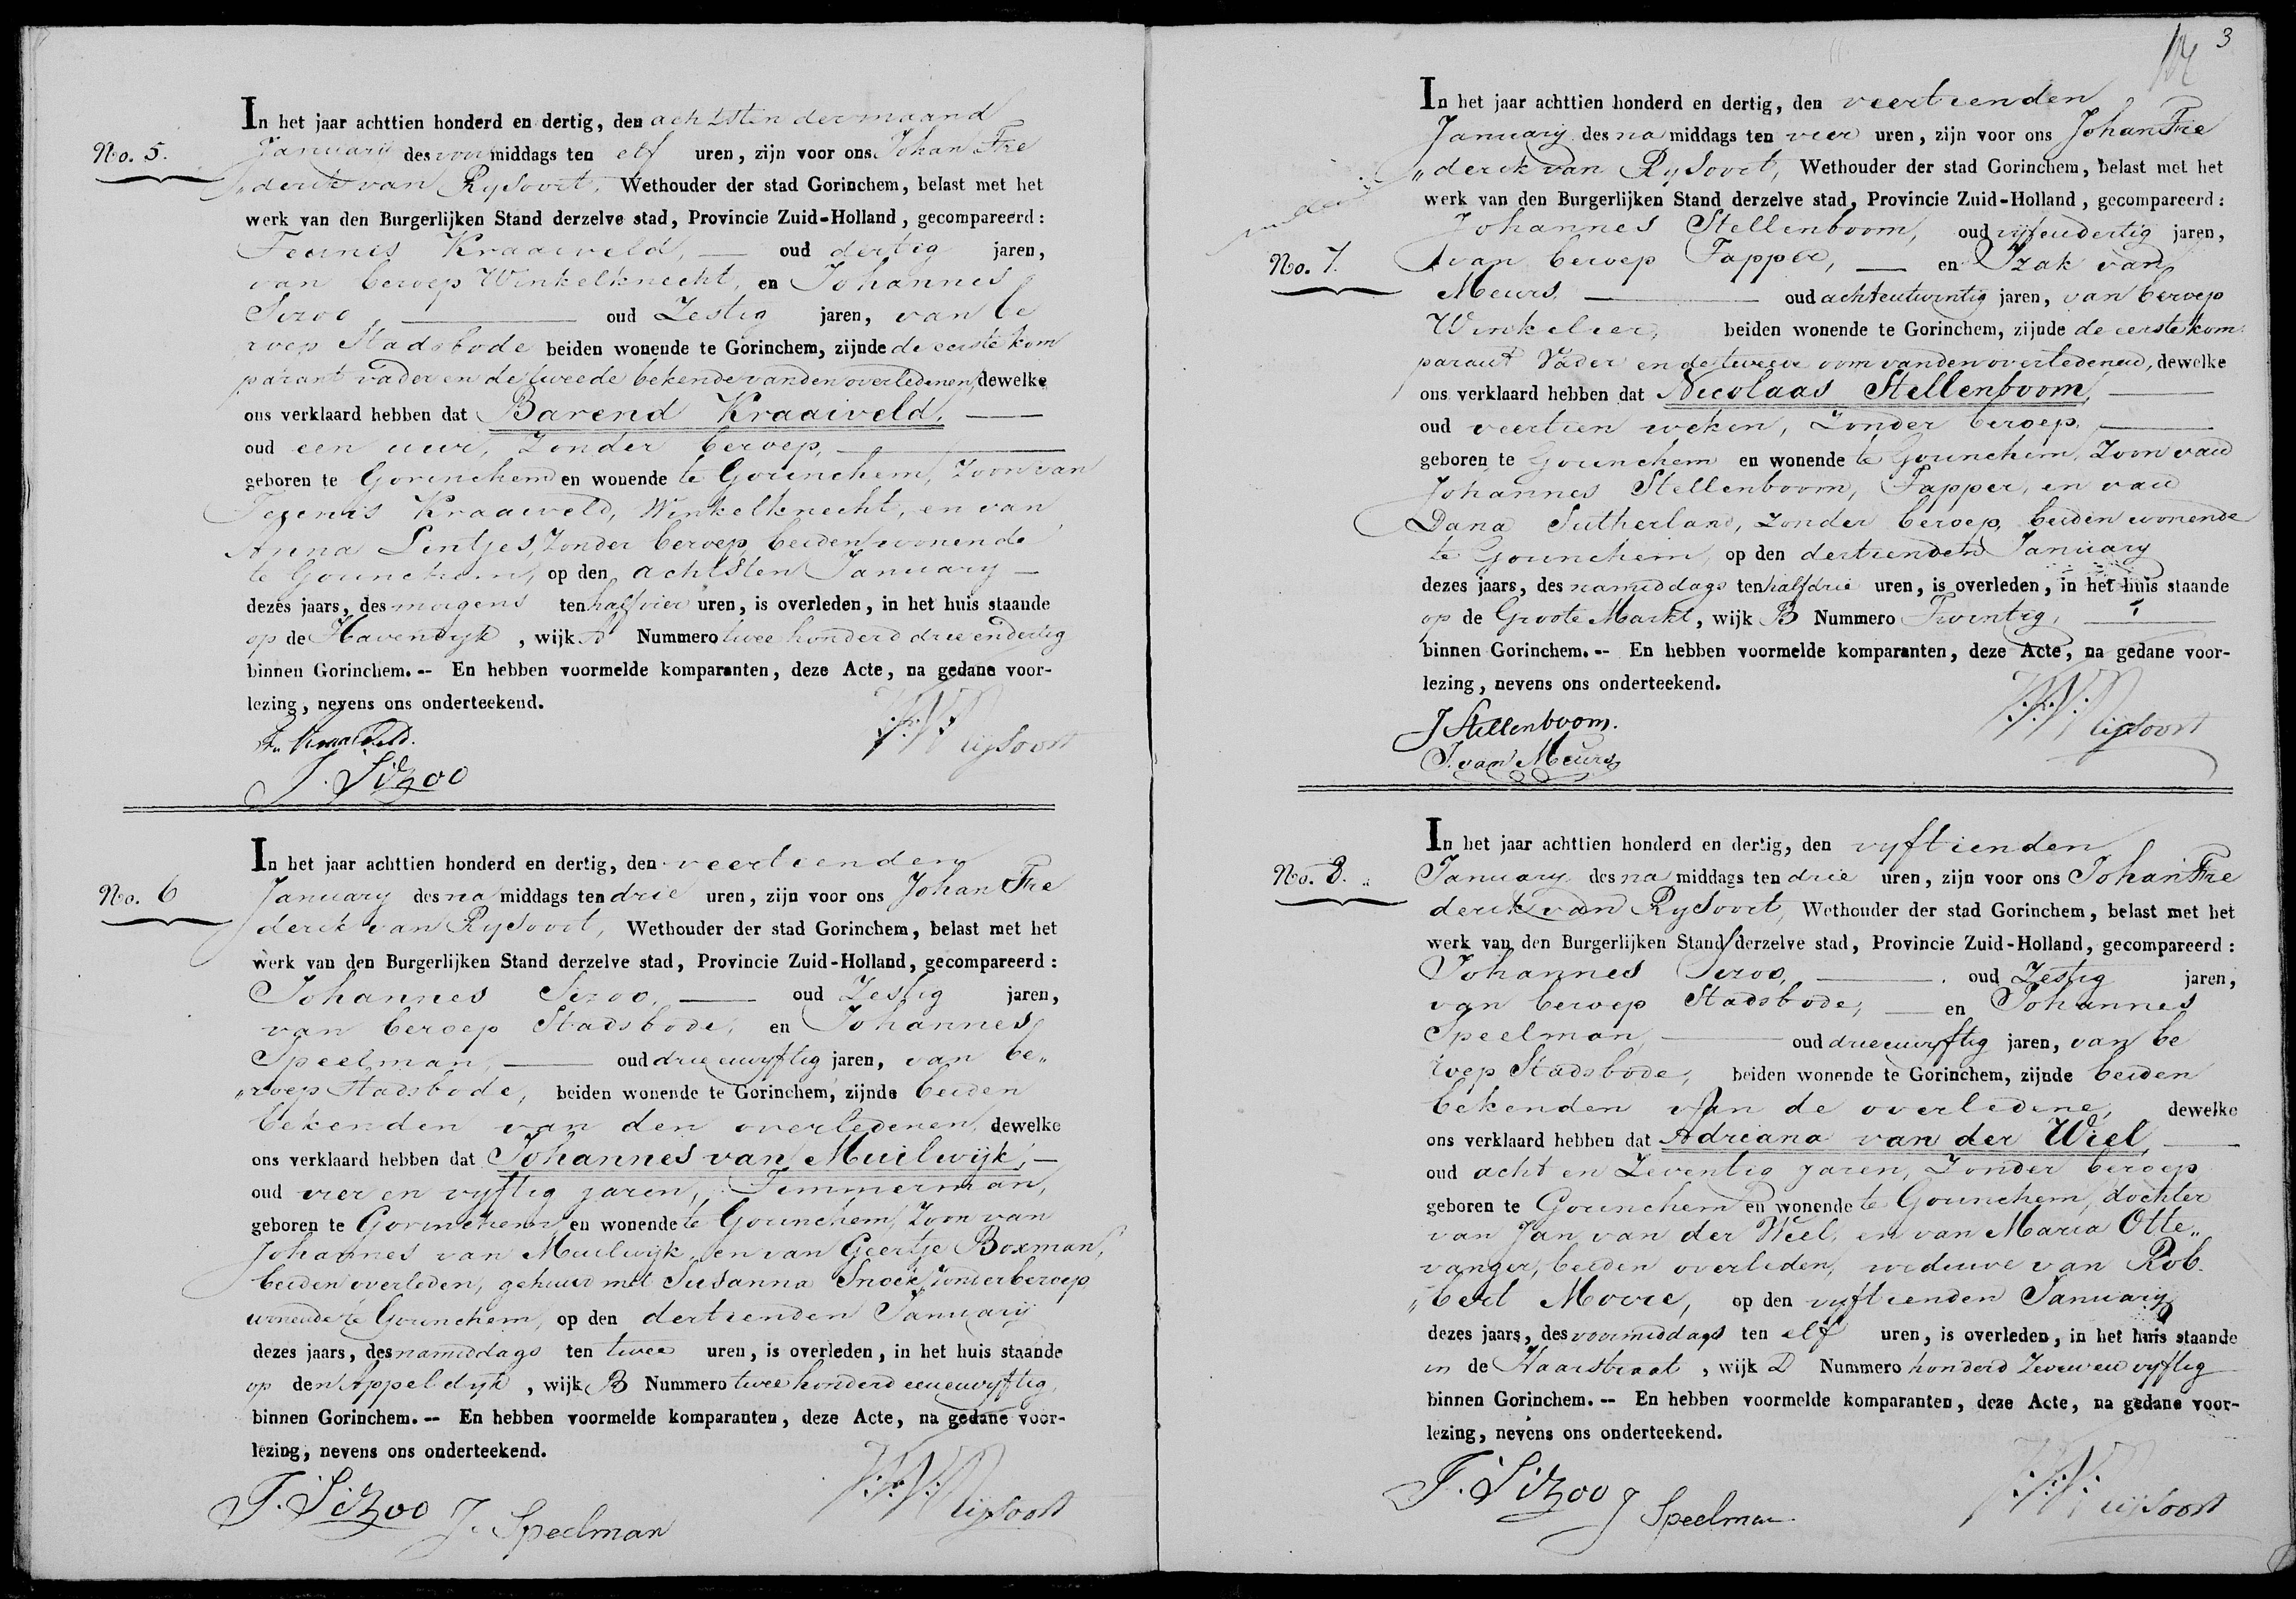 No. 5.
In het jaar achttien honderd en dertig, den achtsten der maand
January des voormiddags ten elf uren, zijn voor ons Johan Fre
„derik van Rysoort, Wethouder der stad Gorinchem, belast met het
werk van den Burgerlijken Stand derzelve stad, Provincie Zuid-Holland, gecompareerd:
Teunis Kraaiveld, — oud dertig jaren,
van beroep Winkelknecht, en Johannes
Sizoo, — oud Zestig jaren, van be
roep Stadsbode beiden wonende te Gorinchem, zijnde de eerste kom
parant vader en de tweede bekende van den overledenen, dewelke
ons verklaard hebben dat Barend Kraaiveld, —
oud een uur, Zonder beroep, —
geboren te Gorinchem en wonende te Gorinchem, Zoon van
Teunis Kraaiveld, Winkelknecht, en van
Anna Lintjes, Zonder beroep, beiden wonende
te Gorinchem, op den achtsten January —
dezes jaars, des morgens ten half vier uren, is overleden, in het huis staande
op de Havendyk, wijk A Nummero twee honderd drie en dertig
binnen Gorinchem. -- En hebben voormelde komparanten, deze Acte, na gedane voor-
lezing, nevens ons onderteekend.
T. Kraaiveld.
J. Sizoo
J.F.V. Rijsoort
No. 6
In het jaar achttien honderd en dertig, den veertienden
January des na middags ten drie uren, zijn voor ons Johan Fre
derik van Rysoort, Wethouder der stad Gorinchem, belast met het
werk van den Burgerlijken Stand derzelve stad, Provincie Zuid-Holland, gecompareerd:
Johannes Sizoo, — oud Zestig jaren,
van beroep Stadsbode, en Johannes
Speelman, — oud drie en vyftig jaren, van be„
„roep Stadsbode, beiden wonende te Gorinchem, zijnde beiden
bekenden van den overledenen, dewelke
ons verklaard hebben dat Johannes van Muilwijk, —
oud vier en vyftig jaren, Timmerman,
geboren te Gorinchem en wonende te Gorinchem, Zoon van
Johannes van Muilwijk, en van Geertje Boxman,
beiden overleden, gehuwd met Susanna Snoek, zonder beroep
wonende te Gorinchem, op den dertienden January
dezes jaars, des namiddags ten twee uren, is overleden, in het huis staande
op den Appeldyk, wijk B Nummero twee honderd een en vyftig,
binnen Gorinchem. -- En hebben voormelde komparanten, deze Acte, na gedane voor-
lezing, nevens ons onderteekend.
J. Sizoo J. Speelman
J.F.V. Rijsoort
3
No. 7.
In het jaar achttien honderd en dertig, den veertienden
January des na middags ten vier uren, zijn voor ons Johan Fre
„derik van Rysoort, Wethouder der stad Gorinchem, belast met het
werk van den Burgerlijken Stand derzelve stad, Provincie Zuid-Holland, gecompareerd:
Johannes Stellenboom, oud vijfendertig jaren,
van beroep Tapper, — en Izak van
Meurs, — oud achtentwintig jaren, van beroep
Winkelier, beiden wonende te Gorinchem, zijnde de eerste kom
parant Vader en de tweede oom van den overledenen, dewelke
ons verklaard hebben dat Nicolaas Stellenboom, —
oud veertien weken, Zonder beroep, —
geboren te Gorinchem en wonende te Gorinchem, Zoon van
Johannes Stellenboom, Tapper, en van
Dana Sutherland, zonder beroep, beiden wonende
te Gorinchem, op den dertienden January
dezes jaars, des namiddags ten half drie uren, is overleden, in het huis staande
op de Groote Markt, wijk B Nummero Twintig, —
binnen Gorinchem. -- En hebben voormelde komparanten, deze Acte, na gedane voor-
lezing, nevens ons onderteekend.
J Stellenboom.
I. van Meurs
J.F.V. Rijsoort
No. 8.
In het jaar achttien honderd en dertig, den vyftienden
January des na middags ten drie uren, zijn voor ons Johan Fre
derik van Rysoort, Wethouder der stad Gorinchem, belast met het
werk van den Burgerlijken Stand derzelve stad, Provincie Zuid-Holland, gecompareerd:
Johannes Sizoo, — oud Zestig jaren,
van beroep Stadsbode, — en Johannes
Speelman, — oud drie en vyftig jaren, van be
roep Stadsbode, beiden wonende te Gorinchem, zijnde beiden
bekenden van de overledene, dewelke
ons verklaard hebben dat Adriana van der Wiel, —
oud acht en Zeventig jaren, Zonder beroep
geboren te Gorinchem en wonende te Gorinchem, dochter
van Jan van der Wiel, en van Maria Otte„
vanger, beiden overleden, weduwe van Rob„
„bert Moore, op den vyftienden January
dezes jaars, des voormiddags ten elf uren, is overleden, in het huis staande
in de Haarstraat, wijk D Nummero honderd zeven en vyftig
binnen Gorinchem. -- En hebben voormelde komparanten, deze Acte, na gedane voor-
lezing, nevens ons onderteekend.
J. Sizoo J Speelman
J.F.V. Rijsoort